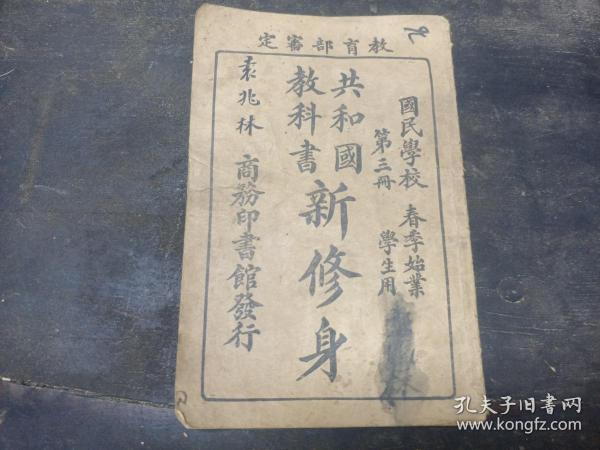 教育部審定
國民學校 春季始業
第三冊 學生用
共和國
教科書
新修身
袁兆林
商務印書館發行
林
孔夫子旧书网
www.kongfz.com